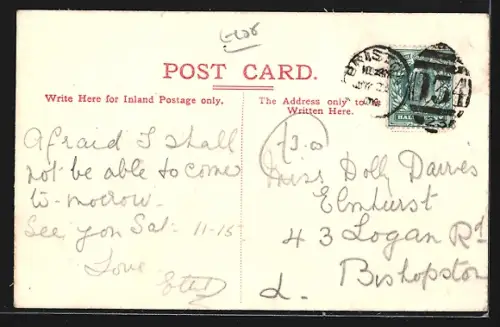 POST CARD.
Write Here for Inland Postage only.
The Address only to be
Written Here.
BRISTOL
134
HALFPENNY
Afraid I shall
not be able to come
to-morrow.
See you Sat- 11-15
Love
Ethel
£3.00
Miss Dolly Davies
Elmhurst
43 Logan Rd
Bishopston